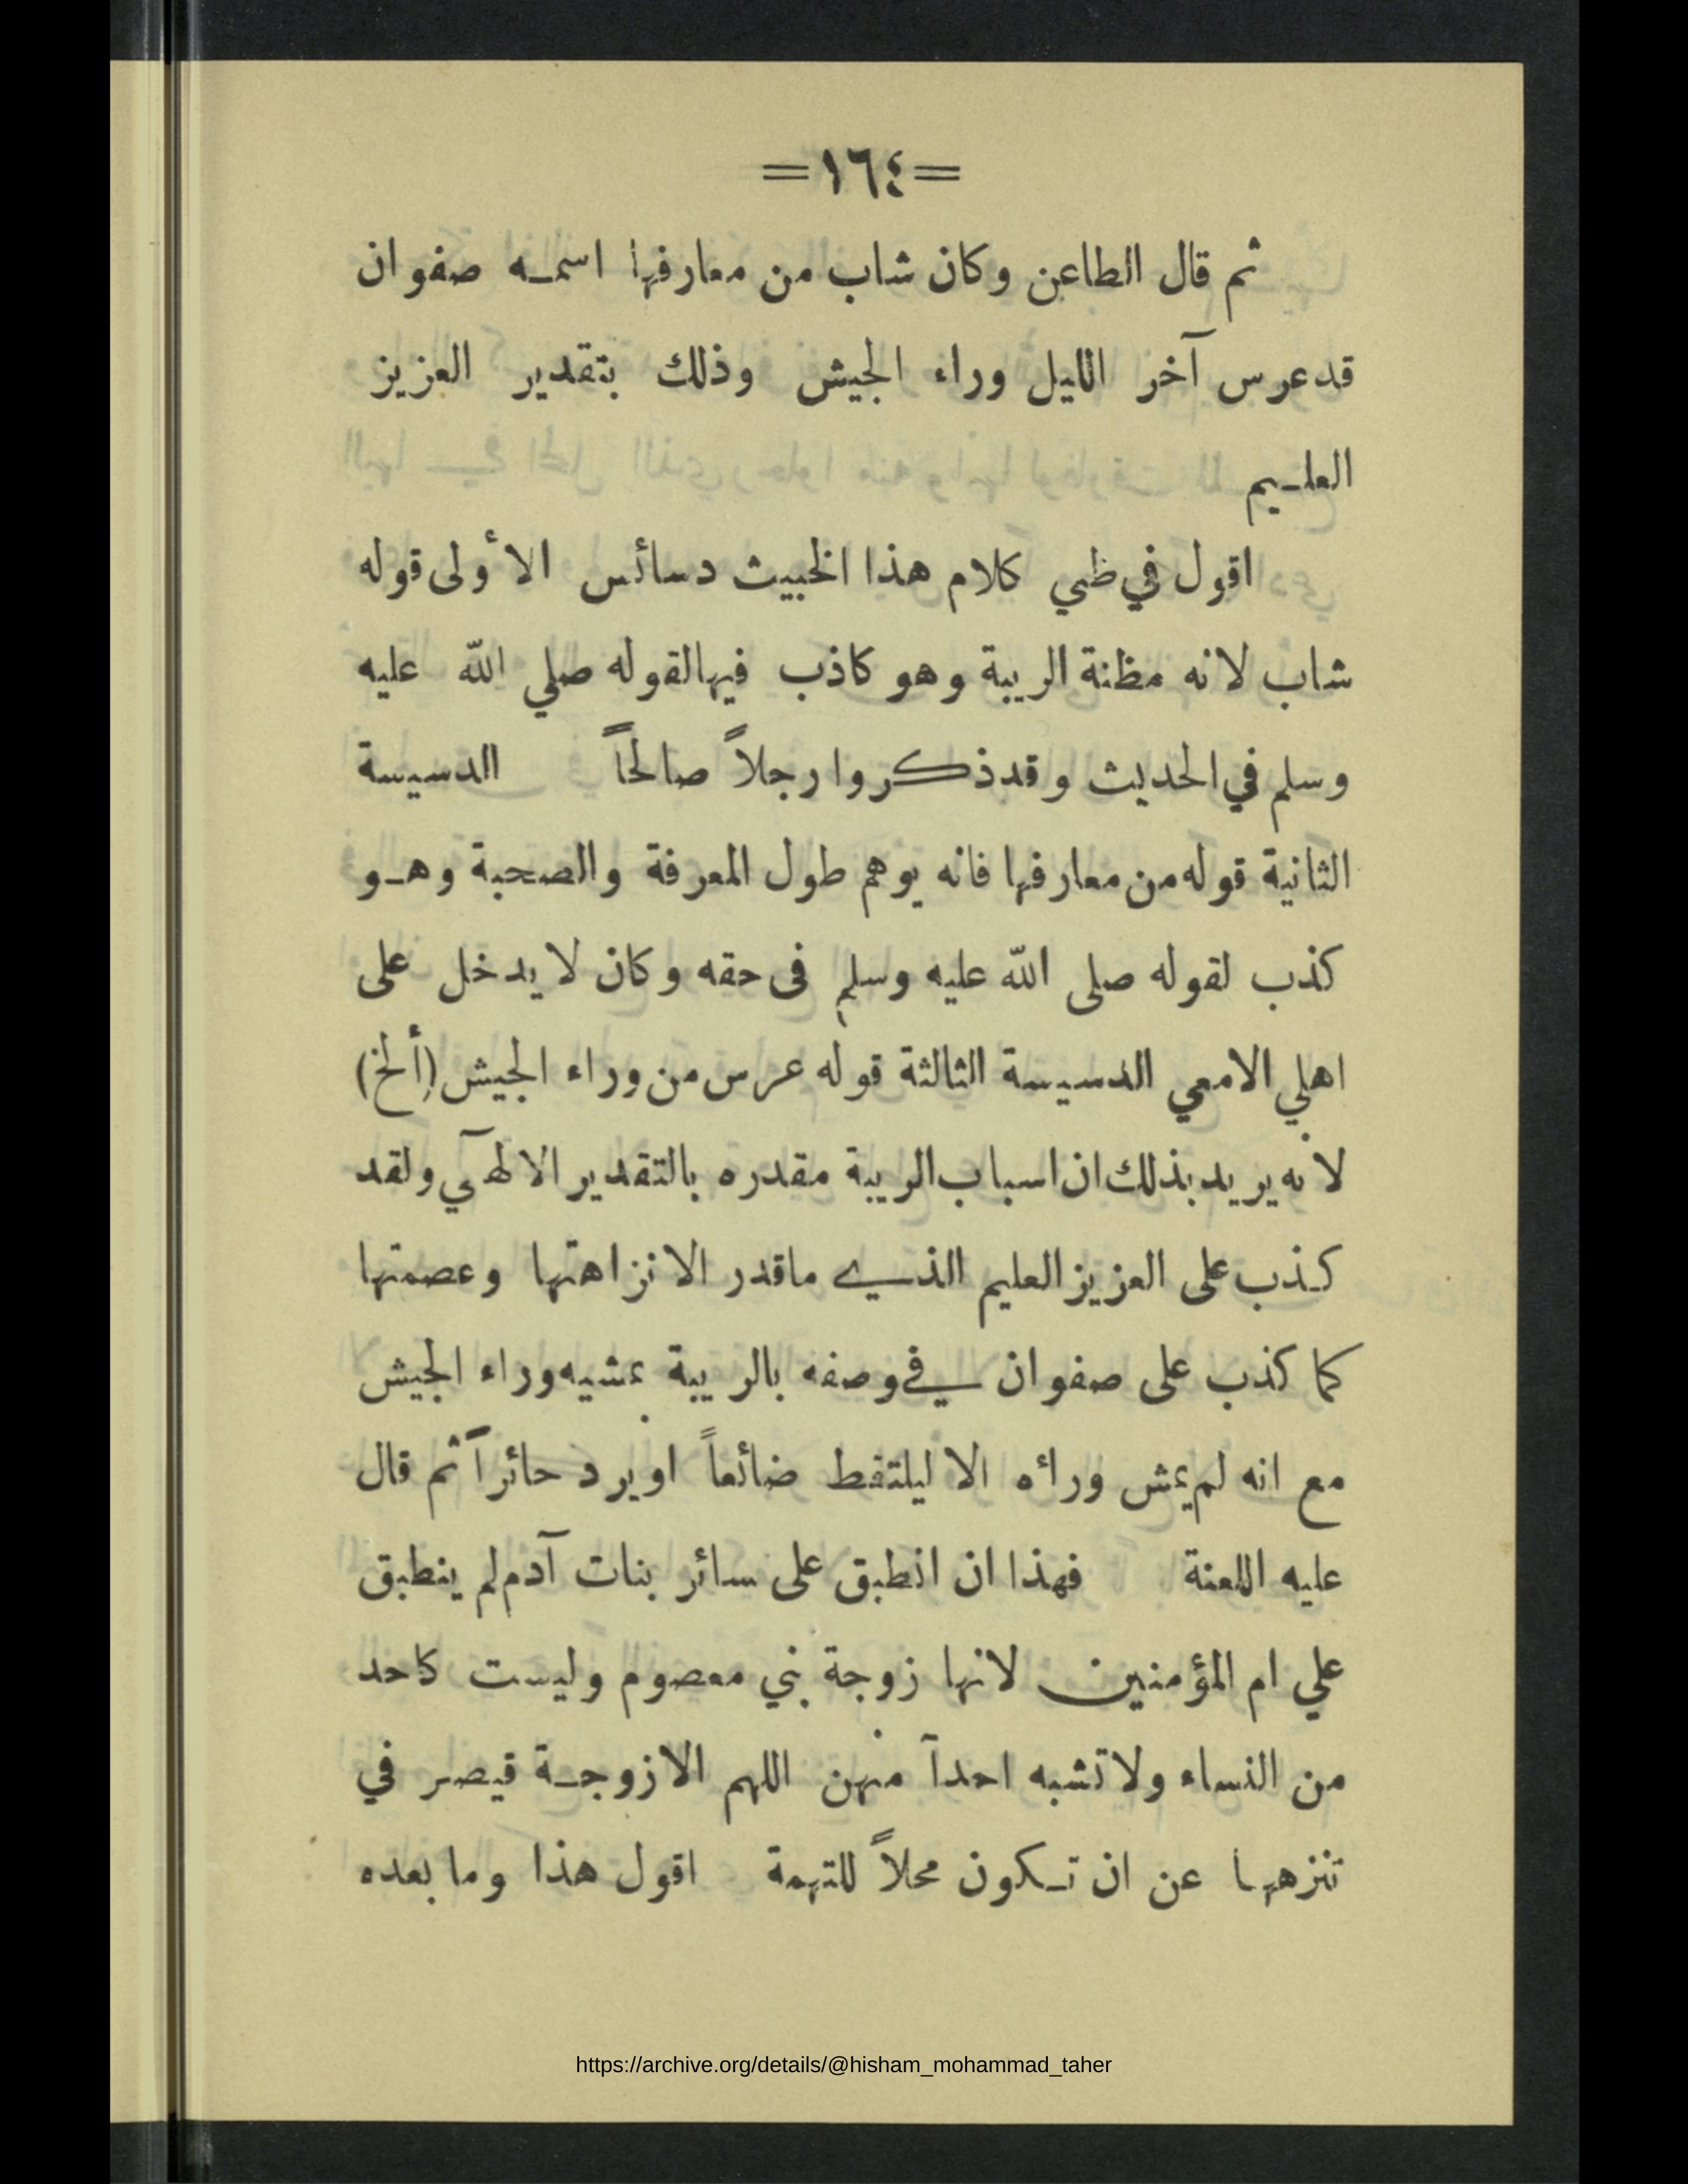 =١٦٤=
ثم قال الطاعن وكان شاب من معارفها اسمـه صفوان
قد عرس آخر الليل وراء الجيش وذلك بتقدير العزيز
العلـيم
اقول في طي كلام هذا الخبيث دسائس الأولى قوله
شاب لانه مظنة الريبة وهو كاذب فيها لقوله صلي الله عليه
وسلم في الحديث وقد ذكروا رجلاً صالحاً الدسيسة
الثانية قوله من معارفها فانه يوهم طول المعرفة والصحبة وهـو
كذب لقوله صلى الله عليه وسلم فى حقه وكان لا يدخل على
اهلي الامعي الدسيسة الثالثة قوله عرس من وراء الجيش (ألخ)
لانه يريد بذلك ان اسباب الريبة مقدره بالتقدير الالهي ولقد
كـذب على العزيز العليم الذي ماقدر الا نزاهتها وعصمتها
كما كذب على صفوان في وصفه بالريبة بمشيه وراء الجيش
مع انه لم يمش ورائه الا ليلتقط ضائعاً او يرد حائراً ثم قال
عليه اللعنة فهذا ان انطبق على سائر بنات آدم لم ينطبق
علي ام المؤمنين لانها زوجة نبي معصوم وليست كاحد
من النساء ولا تشبه احداً منهن اللهم الازوجـة قيصر في
تنزهها عن ان تـكون محلاً للتهمة اقول هذا وما بعده
https://archive.org/details/@hisham_mohammad_taher